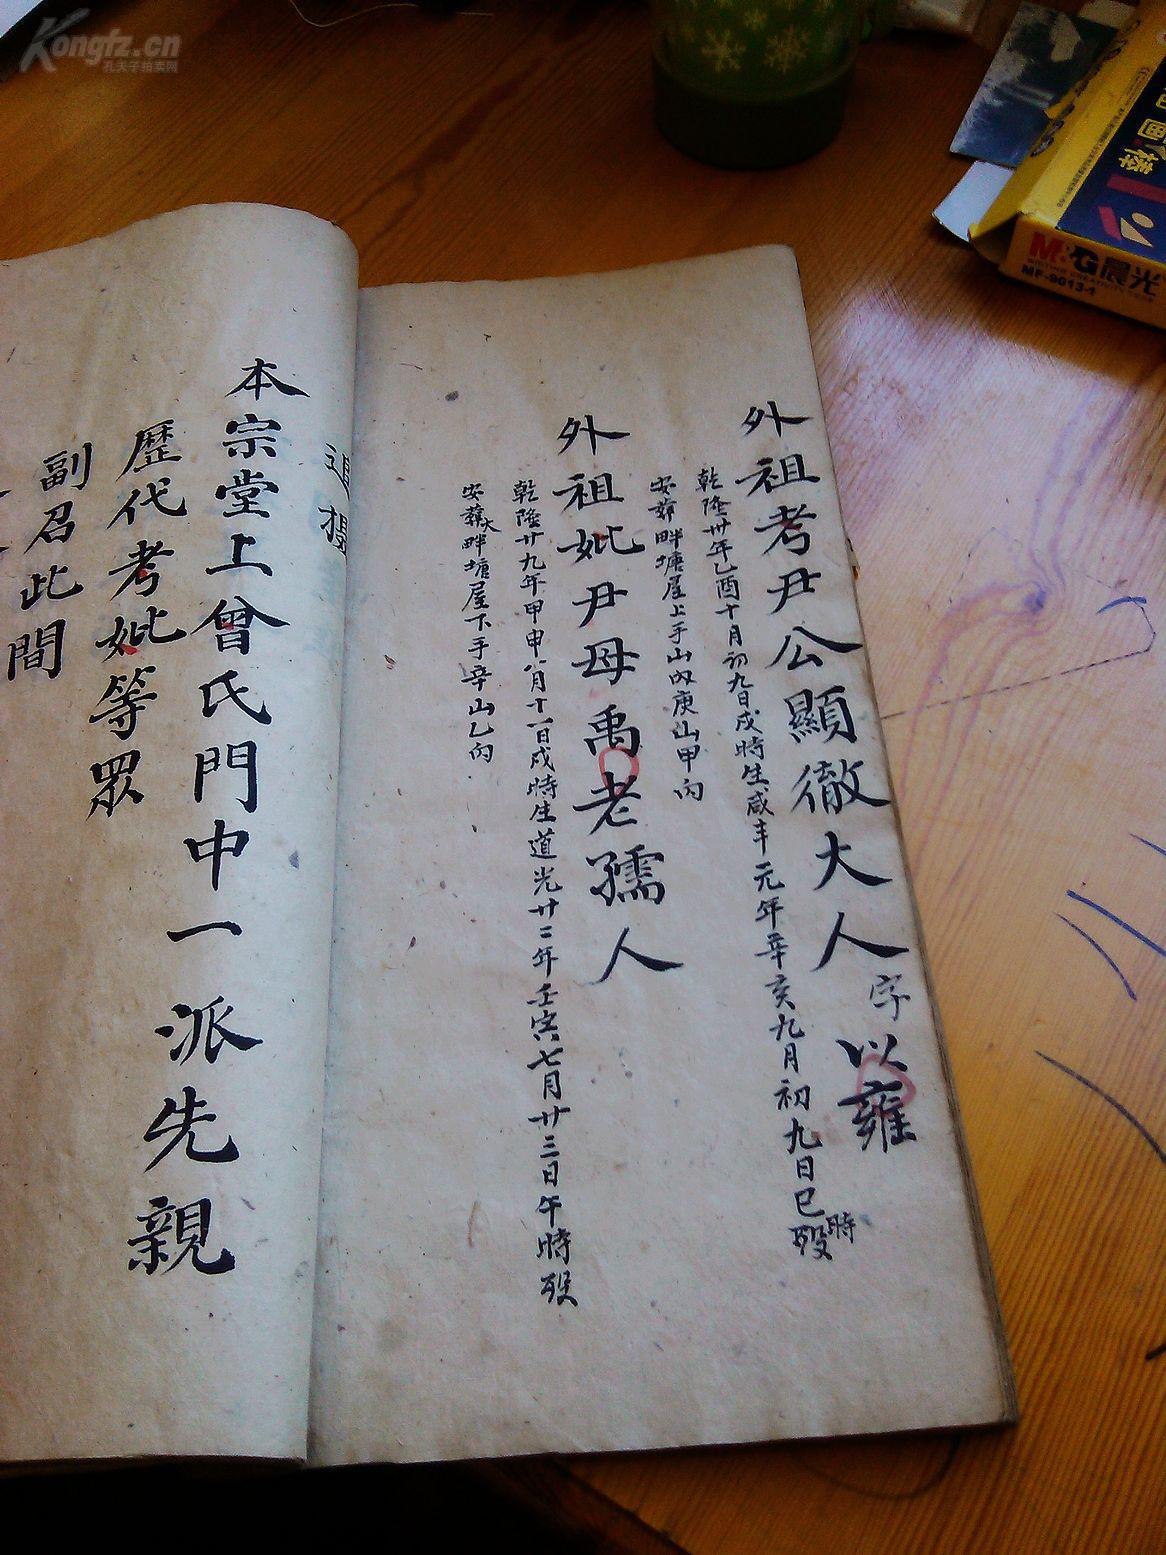 Kongfz.cn
孔夫子拍卖网
M&G晨光
MF-9013-1
外祖考尹公顯徹大人字以雍
乾隆卅年乙酉十月初九日戌時生咸丰元年辛亥九月初九日巳時殁
安葬畔塘屋上手山内庚山甲向
外祖妣尹母禹老孺人
乾隆廿九年甲申八月十一日戌時生道光廿二年壬寅七月廿三日午時殁
安葬大畔塘屋下手辛山乙向
追摄
本宗堂上曾氏門中一派先親
歷代考妣等眾
副召此間